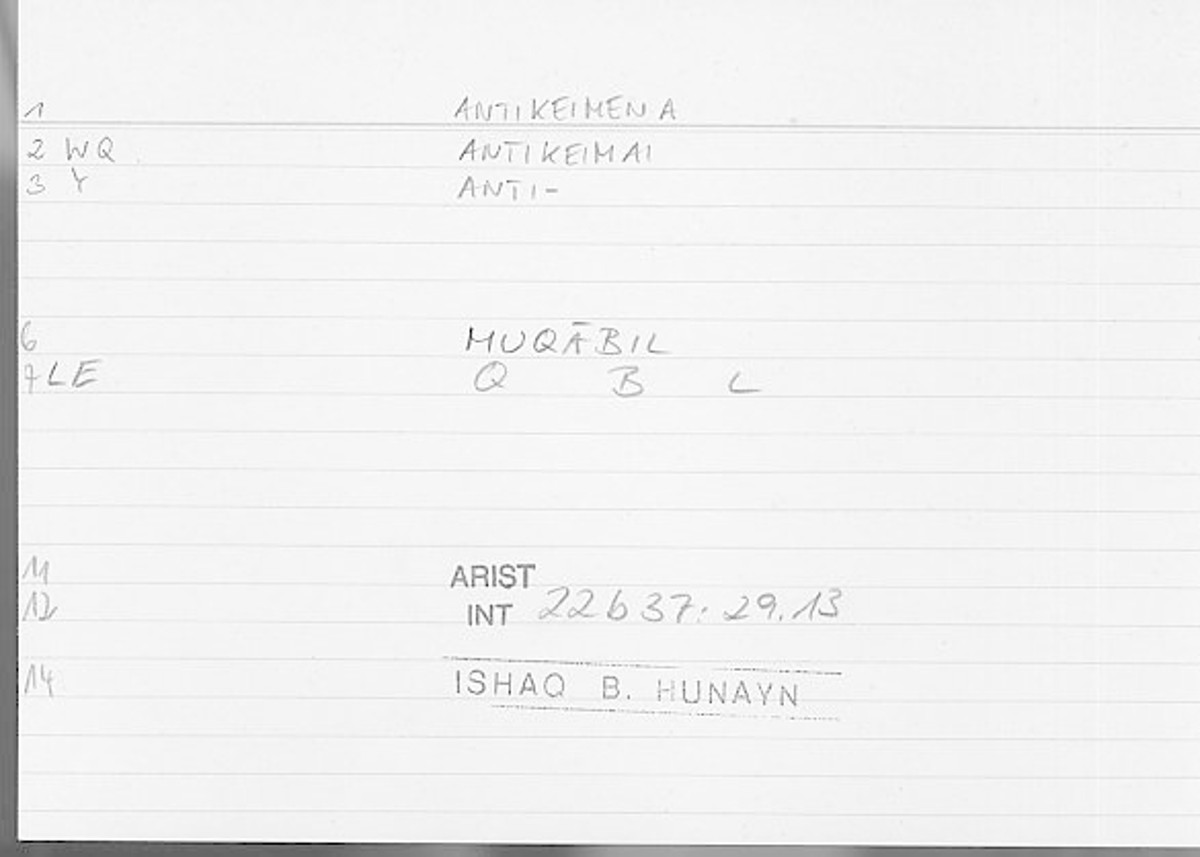 1 ANTIKEIMENA
2 WQ ANTIKEIMAI
3 Y ANTI-
6 MUQĀBIL
7 LE Q B L
11 ARIST
12 INT 22b37:29.13
14 ISHAQ B. HUNAYN